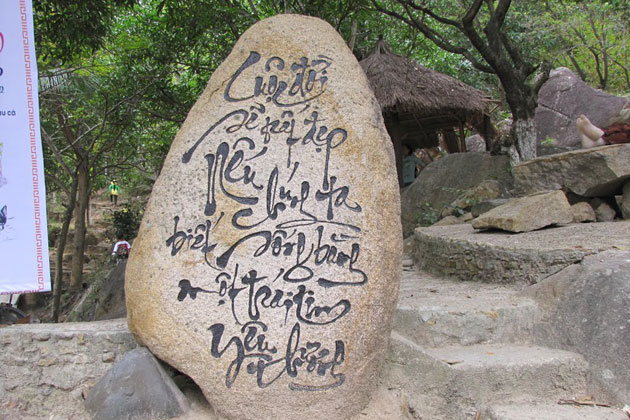 Cuộc đời
sẽ rất đẹp
Nếu
chúng ta
biết sống bằng
một trái tim
yêu thương